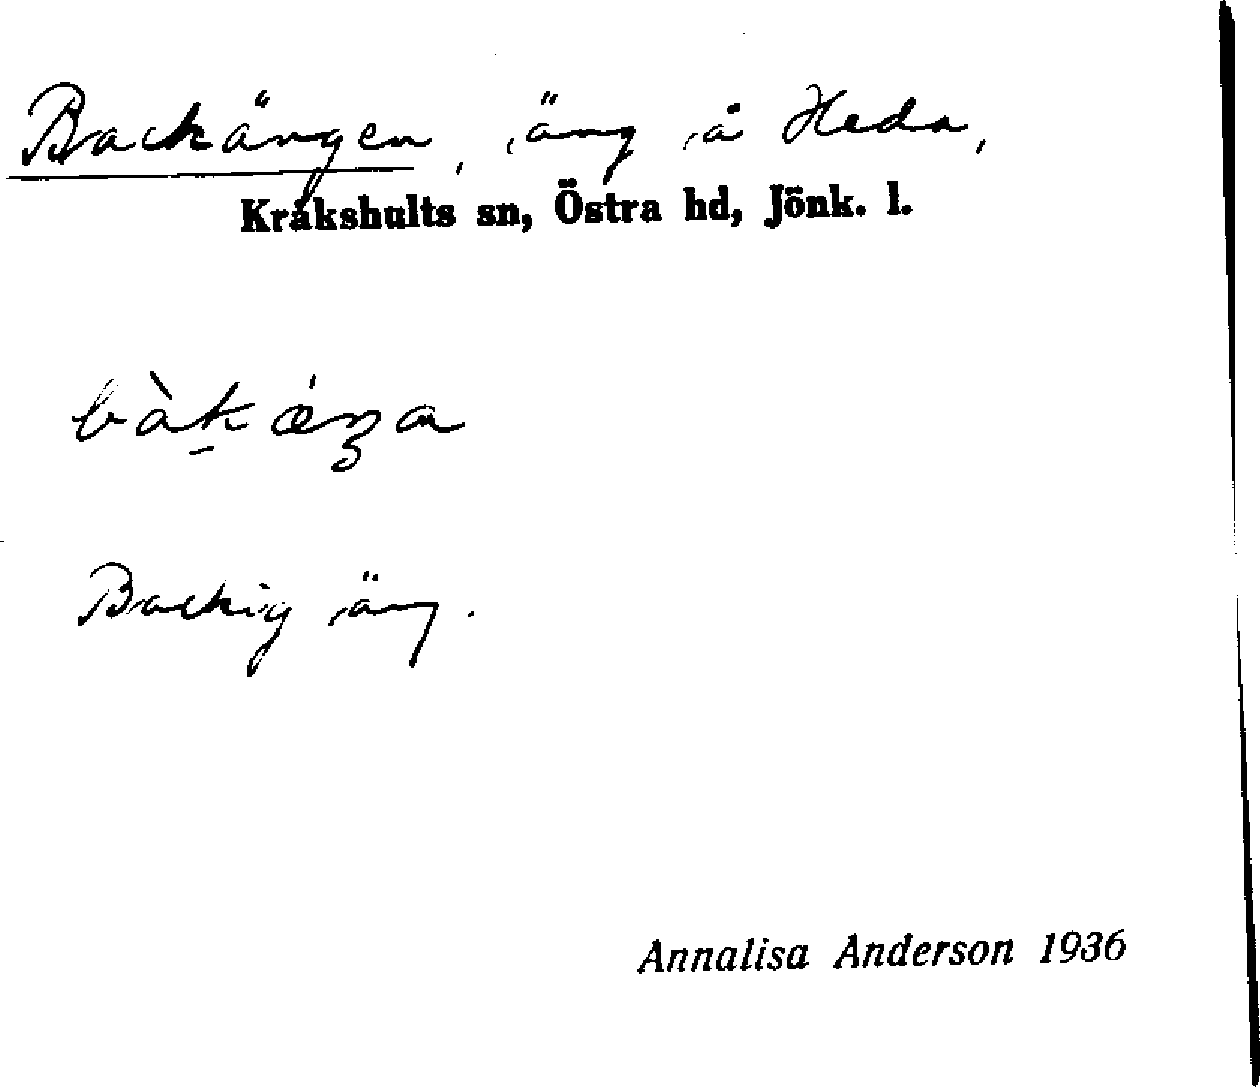 Backängen, äng å Heda,
Kråkshults sn, Östra hd, Jönk. l.
bàk ǽŋa
Backig äng.
Annalisa Anderson 1936